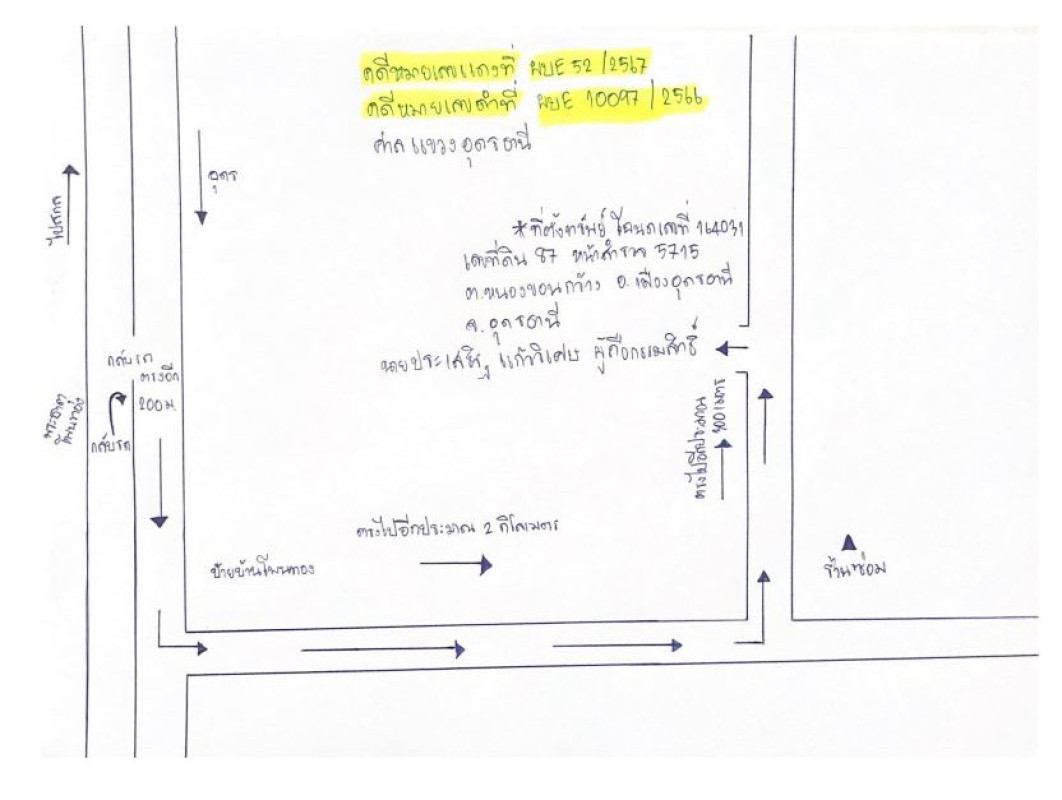 คดีหมายเลขแดงที่ ผบE 52/2567
คดีหมายเลขดำที่ ผบE 10097/2566
ศาลแขวงอุดรธานี
อุดร
ไปสกล
*ที่ตั้งทรัพย์ โฉนดเลขที่ 164031
เลขที่ดิน 87 หน้าสำรวจ 5715
ต.หนองขอนกว้าง อ.เมืองอุดรธานี
จ.อุดรธานี
นายประเสริฐ แก้ววิเศษ ผู้ถือกรรมสิทธิ์
กลับรถ
ตรงอีก
200 ม.
กลับรถ
พระธาตุ
โพนทอง
ตรงไปอีกประมาณ
ตรงไปอีกประมาณ 2 กิโลเมตร
ป้ายบ้านโพนทอง
ร้านซ่อม